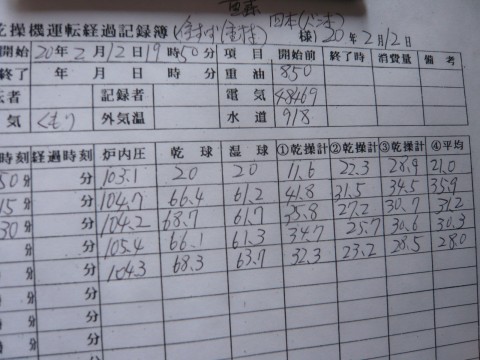 乾操機運転経過記録簿 様) 20年2月12日
開始 20年2月12日19時50分 項目 開始前 終了時 消費量 備考
終了 年 月 日 時 分 重油 850
転者 記録者 電気 48469
気 くもり 外気温 水道 918
時刻 経過時刻 炉内圧 乾球 湿球 ①乾操計 ②乾操計 ③乾操計 ④平均
50分 分 103.1 20 20 11.6 22.3 28.9 21.0
15分 分 104.7 66.4 61.2 41.8 31.5 34.5 35.9
30分 分 104.2 68.7 61.7 35.8 27.2 30.7 31.2
分 分 105.4 66.1 61.3 34.7 25.7 30.6 30.3
分 分 104.3 68.3 63.7 32.3 23.2 28.5 28.0
分 分
分 分
分 分
分